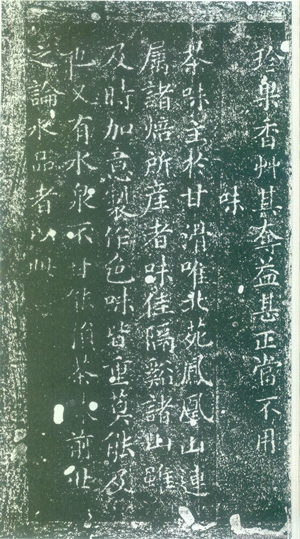 珎菓香艸其奪益甚正當不用
味
茶味主於甘滑唯北苑鳳凰山連
屬諸焙所産者味佳隔谿諸山雖
及時加意製作色味皆重莫能及
也又有水泉不甘能損茶味前世
之論水品者以此